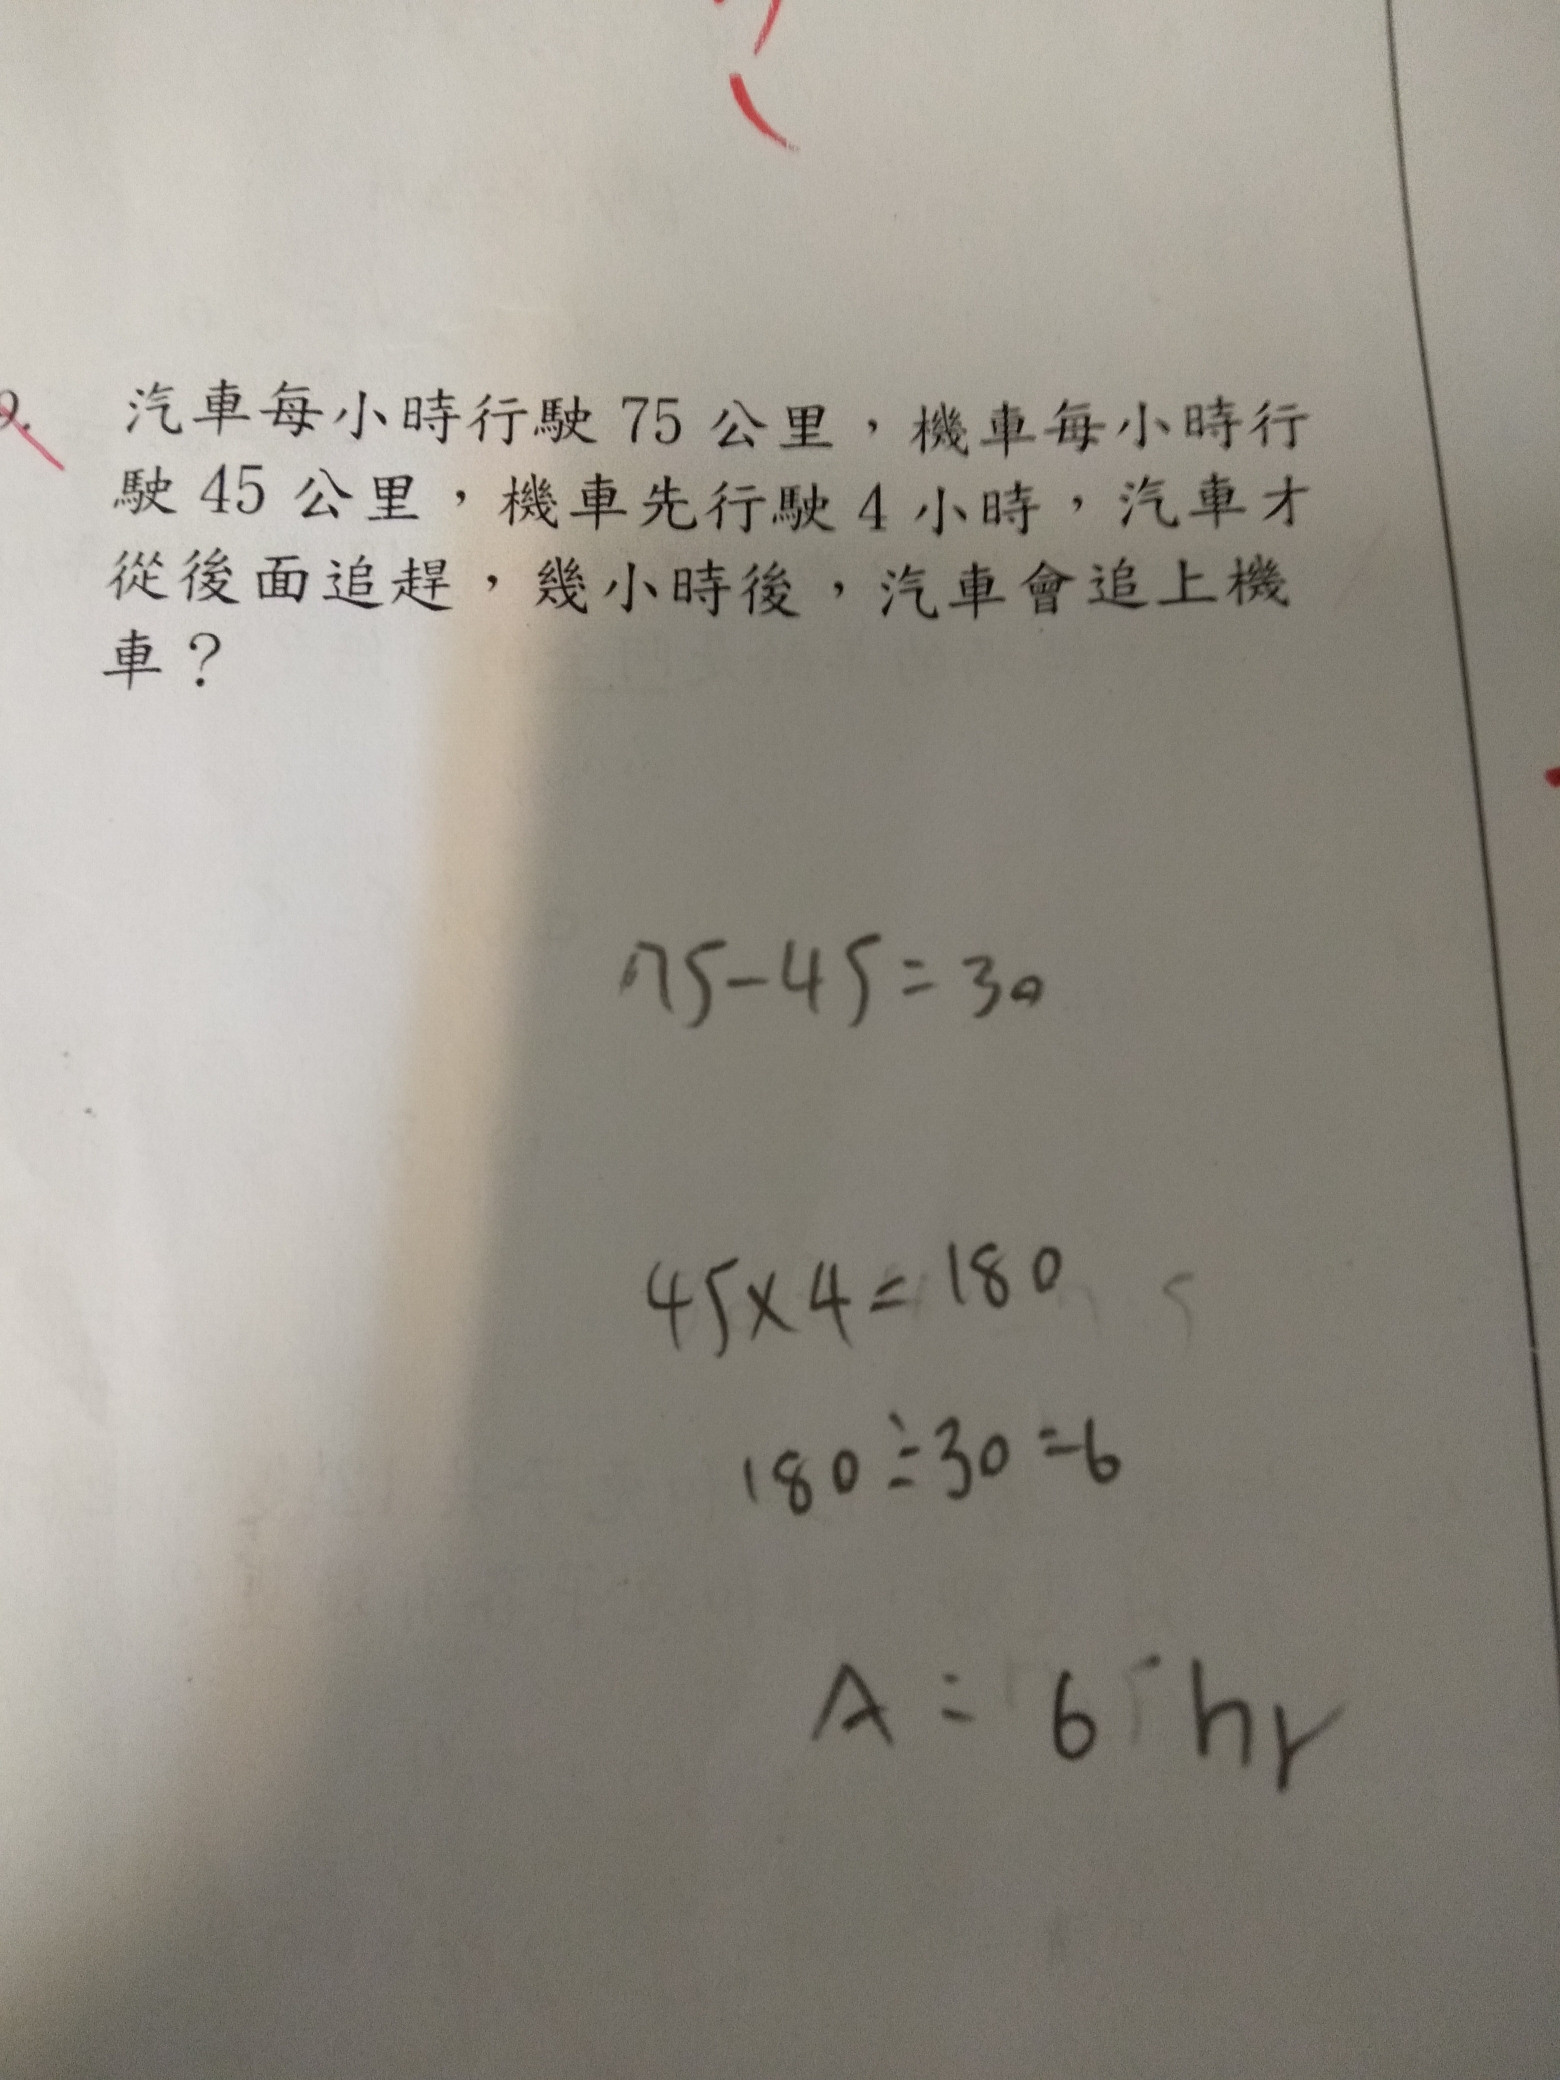 汽車每小時行駛 75 公里，機車每小時行
駛 45 公里，機車先行駛 4 小時，汽車才
從後面追趕，幾小時後，汽車會追上機
車？
75-45=30
45×4=180
180÷30=6
A = 6 hr